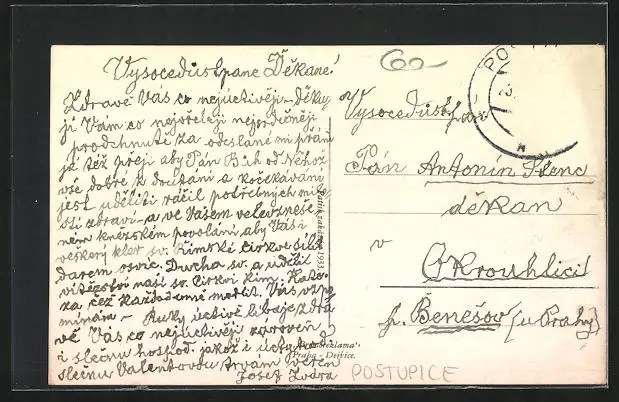 Vysocedůst. pane Děkane!
Zdravě Vás co nejuctivěji děku
ji Vám co nejvřeleji nejsrdečněji
prodchnuté za odeslané mi přání
je též přeji aby Pán Bůh od Něhož
vše dobré k doufání a k očekávání
jest uděliti ráčil potřebných mi
sti zdraví a ve Vašem velevzneše
ném kněžském povolání aby Vás i
veškerý kler sv. Římské Církve sílil
darem osvíc. Ducha sv. a udělil
vítězství naší sv. Církvi Řím. Kato.
za což každodenně modlit. Vás vzpo
mínám – Ruky uctivě líbaje zdra
vě Vás co nejuctivěji zároveň
i slečnu hospod. jakož i
slečnu Valentovou trvám
Josef
60
Vysocedůst. pan
Pán Antonín
děkan
v
Okrouhlici
p. Benešov (u Prahy)
Praha - Dejvice.
POSTUPICE